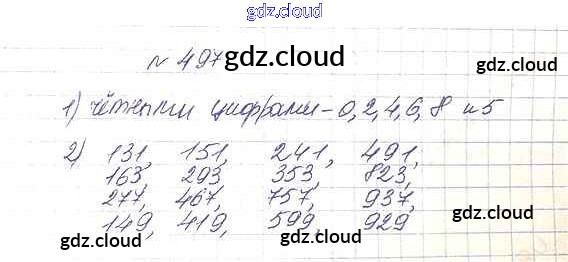 gdz.cloud
№ 497 gdz.cloud
1) чётными цифрами - 0, 2, 4, 6, 8 и 5
2) 131, 151, 241, 491,
163, 293, 353, 823,
277, 467, 757, 937,
149, 419, 599, 929
gdz.cloud gdz.cloud
gdz.cloud gdz.cloud gdz.cloud
gdz.cloud gdz.cloud